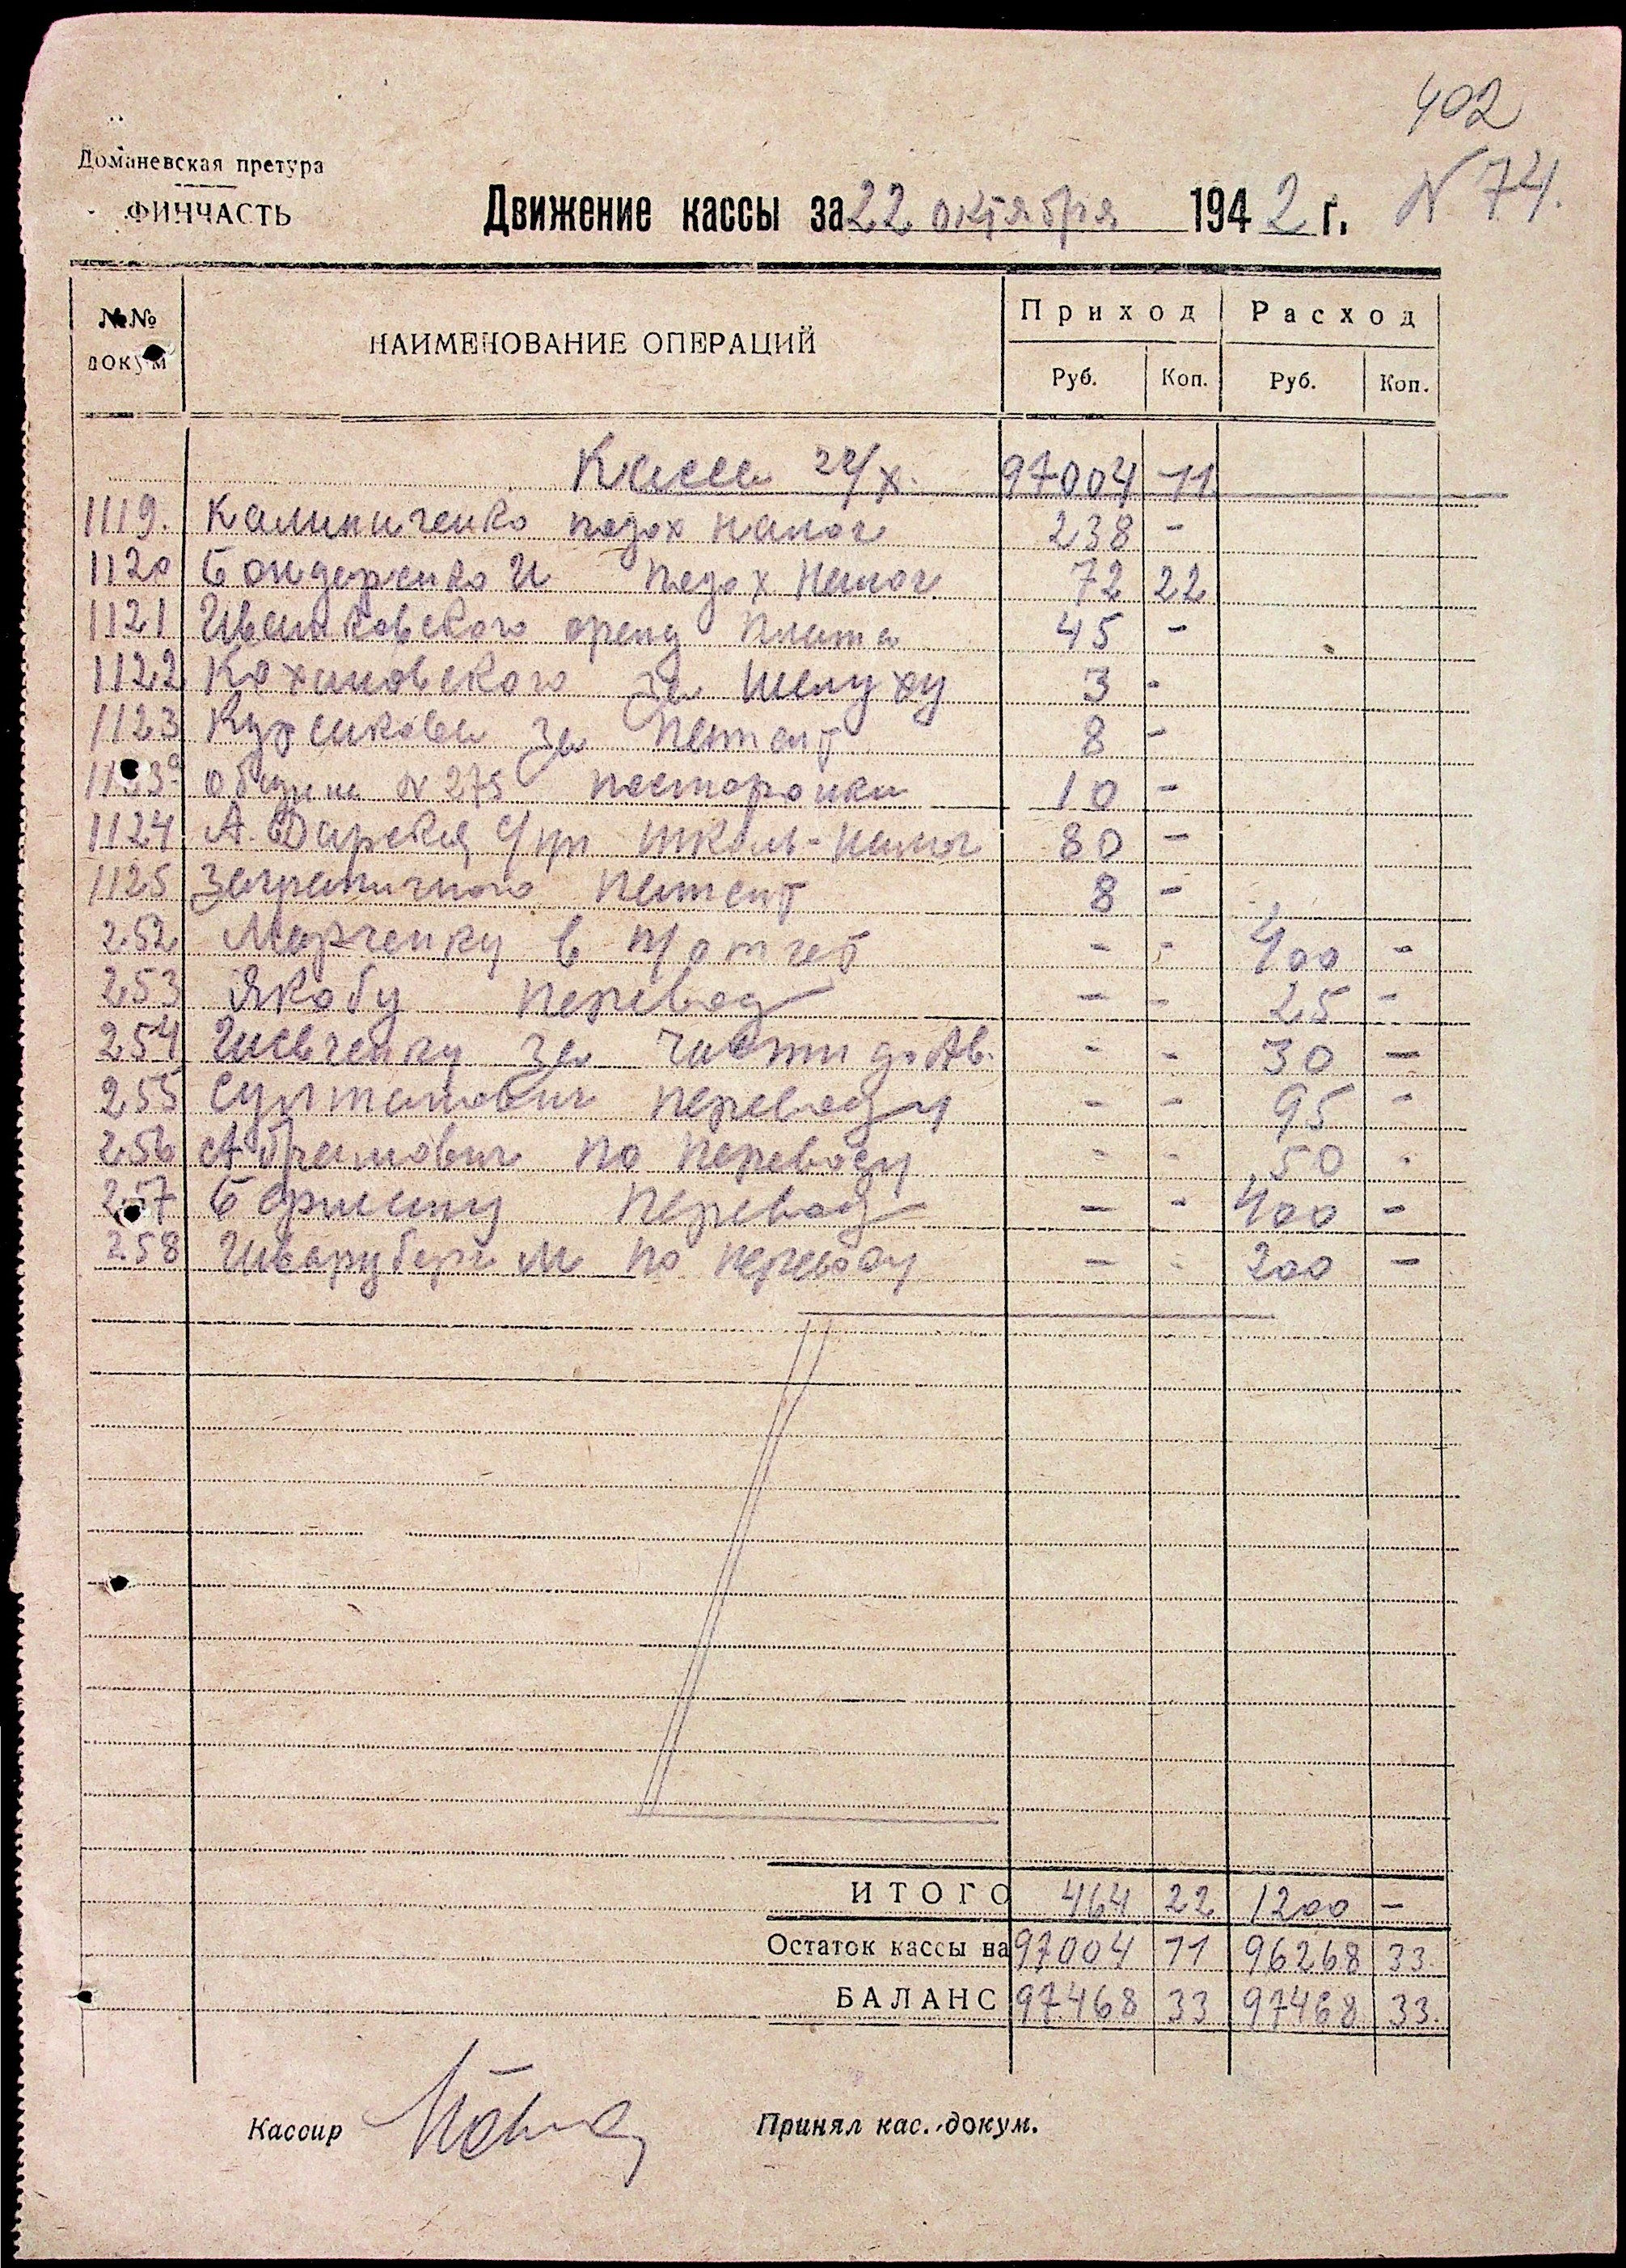 402
Доманевская претура
ФИНЧАСТЬ
Движение кассы за 22 октября 1942 г. N 74.
№№ докум | НАИМЕНОВАНИЕ ОПЕРАЦИЙ | Приход | Расход
Руб. | Коп. | Руб. | Коп.
Касса /X. 97004 11
1119. Калиниченко подох налог 238 -
1120 Бондаренко И подох налог. 72 22
1121 Ивашковского аренд плата 45 -
1122 Кохановского за шелуху 3 -
1123 Курикова за патент 8 -
общине N 275 10 -
1124 А. Дарская с/пр школь-налог 80 -
1125 Заграничного патент 8 -
252 Марченку в п/отчет - - 400 -
253 Якобу перевод - - 25 -
254 Шевченку за части до Ав. - - 30 -
255 Султанович переводу - - 95 -
256 Абрамович по переводу - - 50 -
257 перевод - - 400 -
258 М по переводу - - 200 -
ИТОГО 464 22 1200 -
Остаток кассы на 97004 11 96268 33.
БАЛАНС 97468 33 97468 33.
Кассир Принял кас. докум.